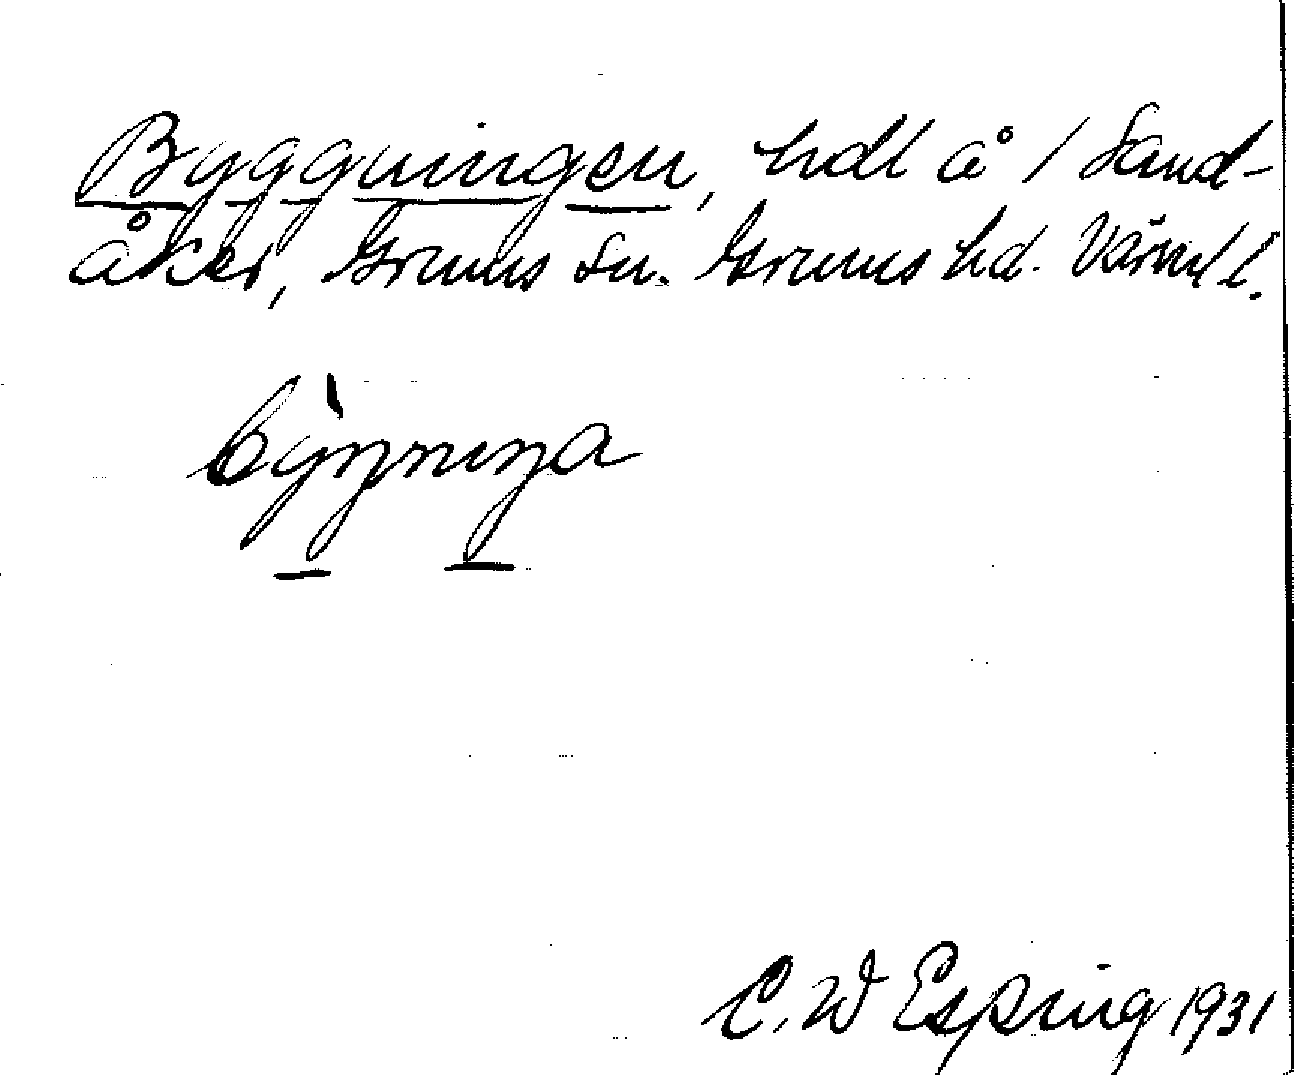 Byggningen, hdl å 1 Sand-
åker, Grums sn. Grums hd. Värml.
bỳgniŋa
C. W Esping 1931